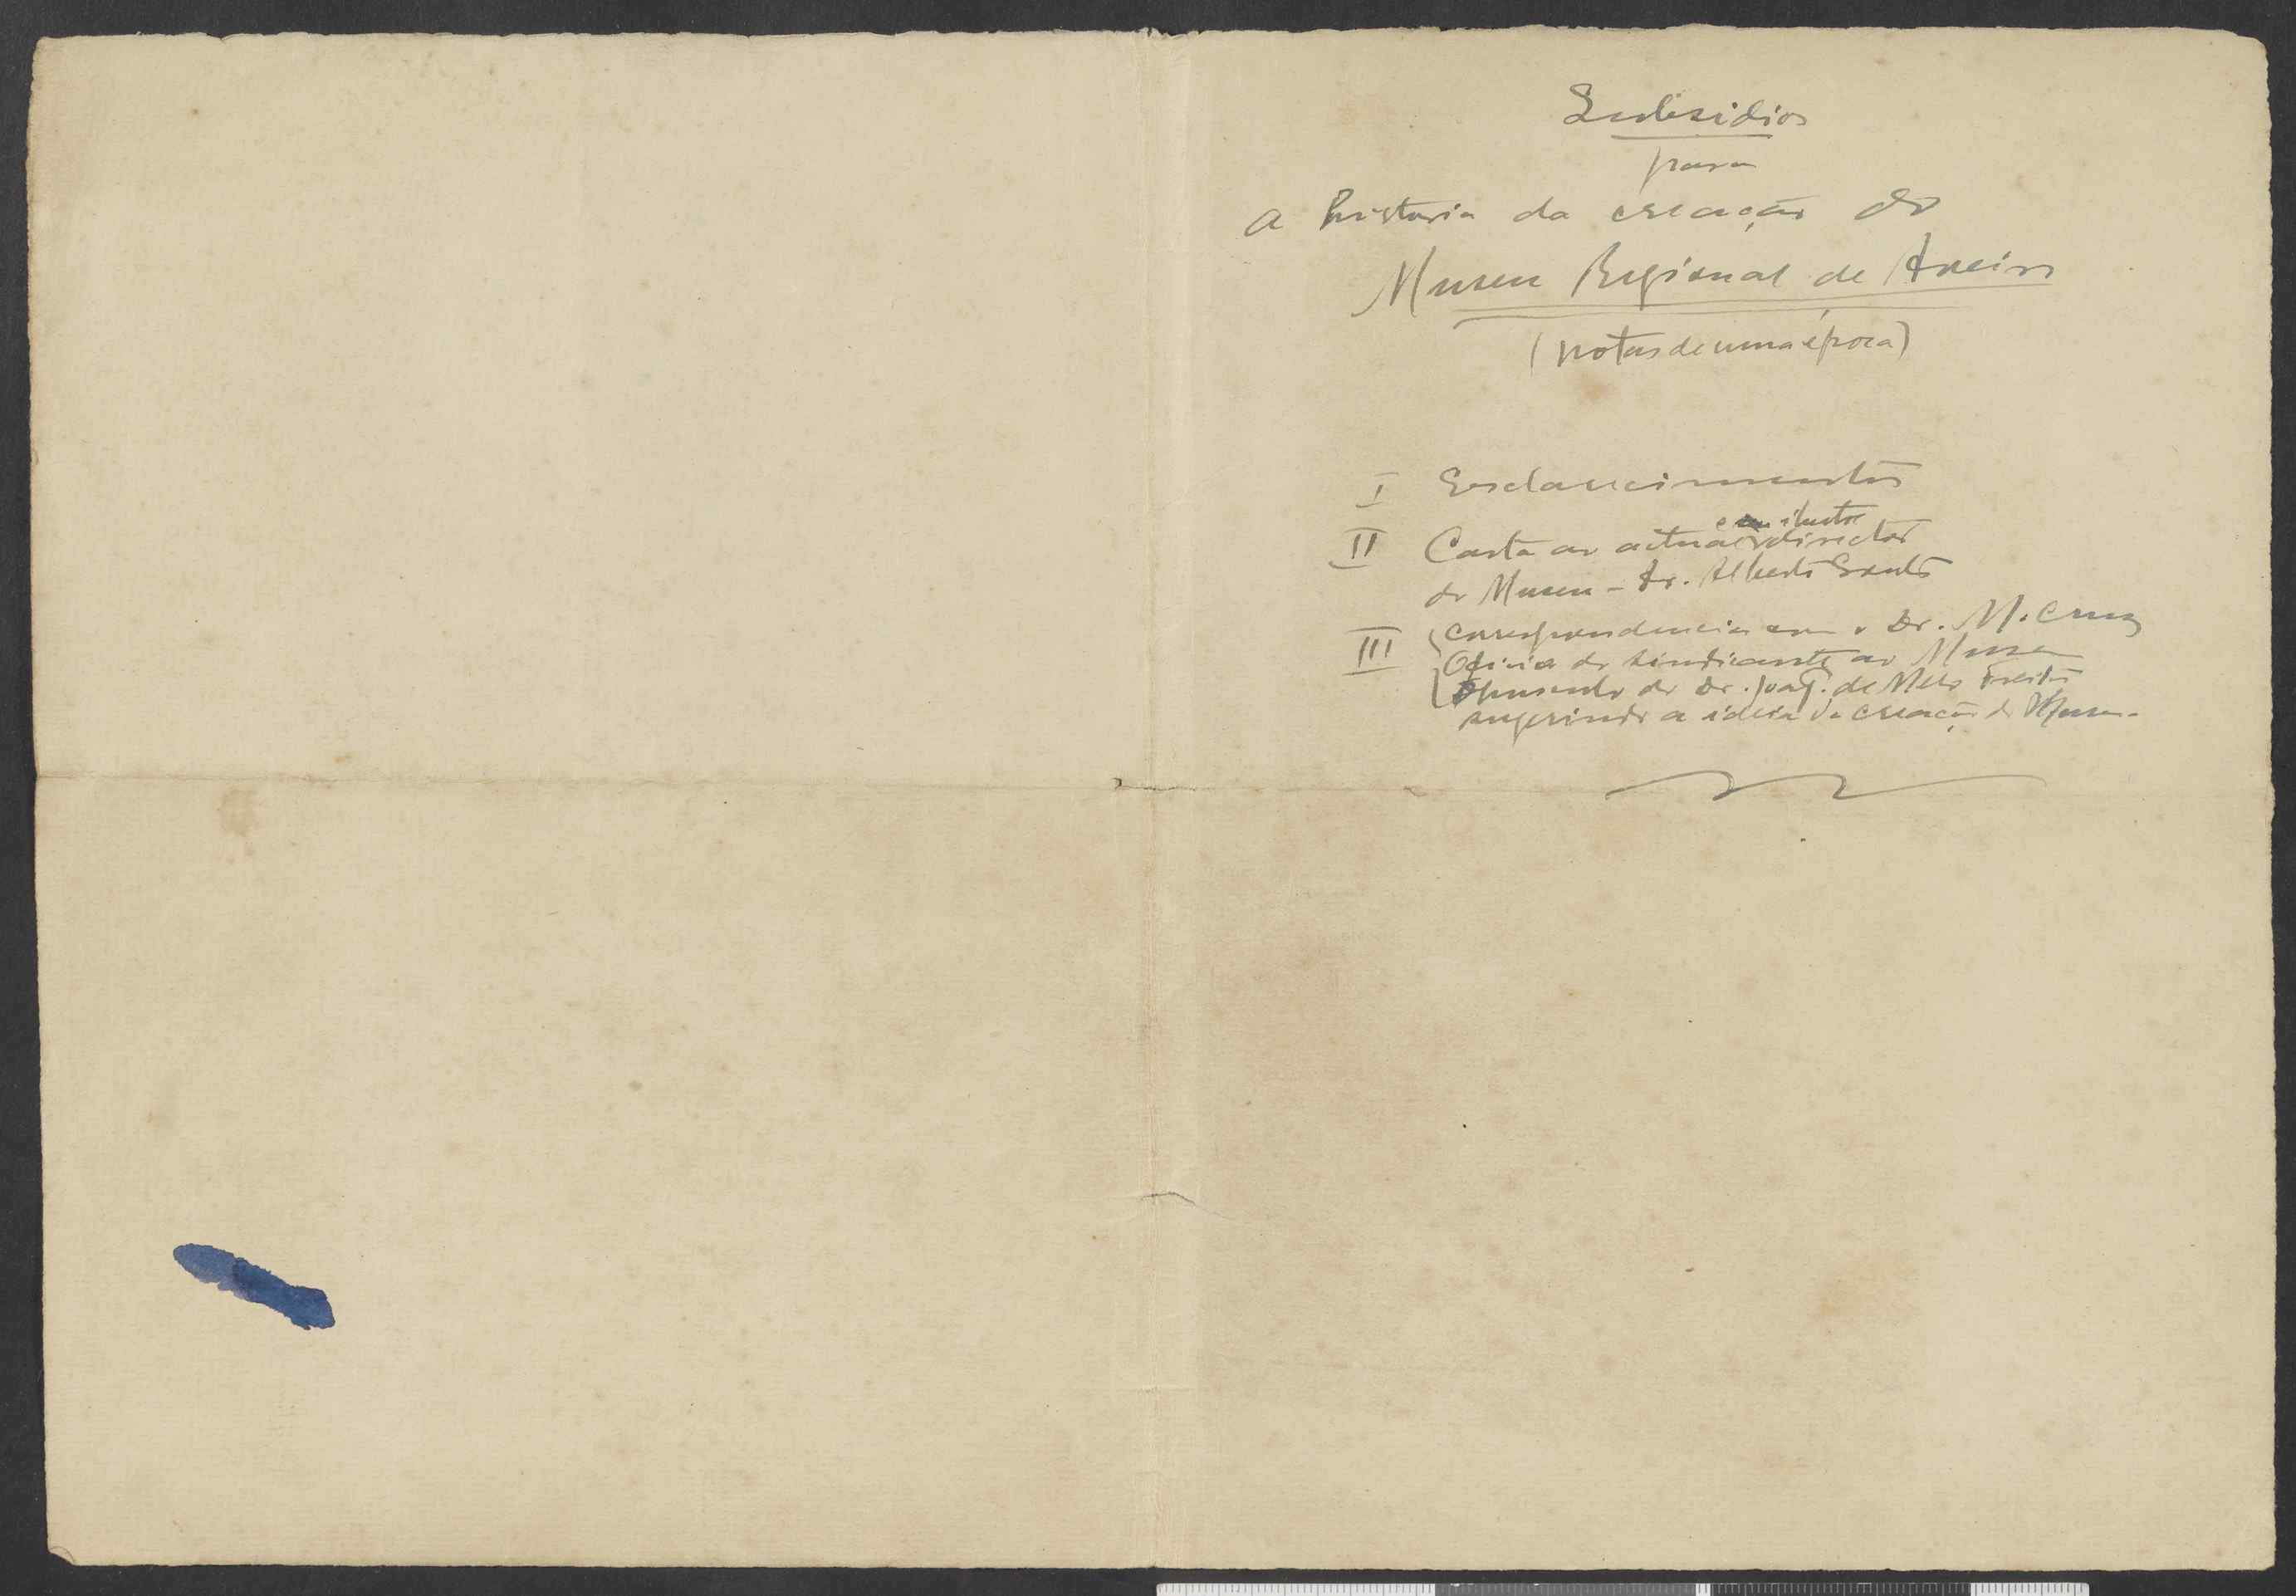 Subsidios
para
a historia da creação do
Museu Regional de Aveiro
(notas de uma época)
I Esclarecimentos
e ilustre
II Carta ao actual director
do Museu - Dr. Alberto Souto
III Correspondencia com o Dr. M. Cruz
Oficio do sindicante ao Museu
Opusculo do Dr. Joaq. de Melo Freitas
sugerindo a ideia da creação do Museu.